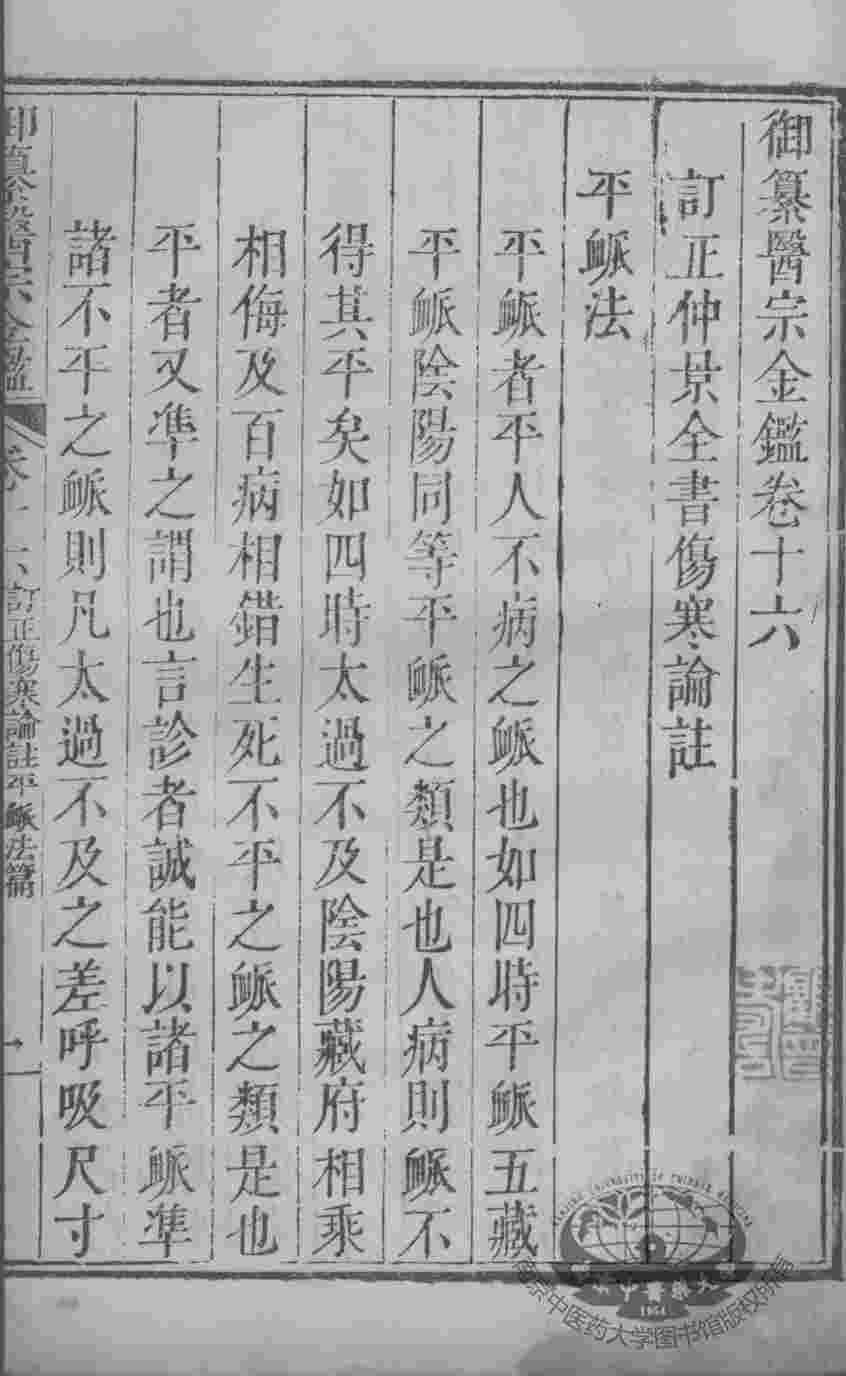 御纂醫宗金鑑卷十六
訂正仲景全書傷寒論註
平䘑法
平䘑者平人不病之䘑也如四時平䘑五藏
平䘑陰陽同等平䘑之類是也人病則䘑不
得其平矣如四時太過不及陰陽藏府相乘
相侮及百病相錯生死不平之䘑之類是也
平者又準之謂也言診者誠能以諸平䘑準
諸不平之䘑則凡太過不及之差呼吸尺寸
御纂醫宗金鑑 卷十六 訂正傷寒論註平䘑法篇 一
南京中医药大学图书馆版权所有